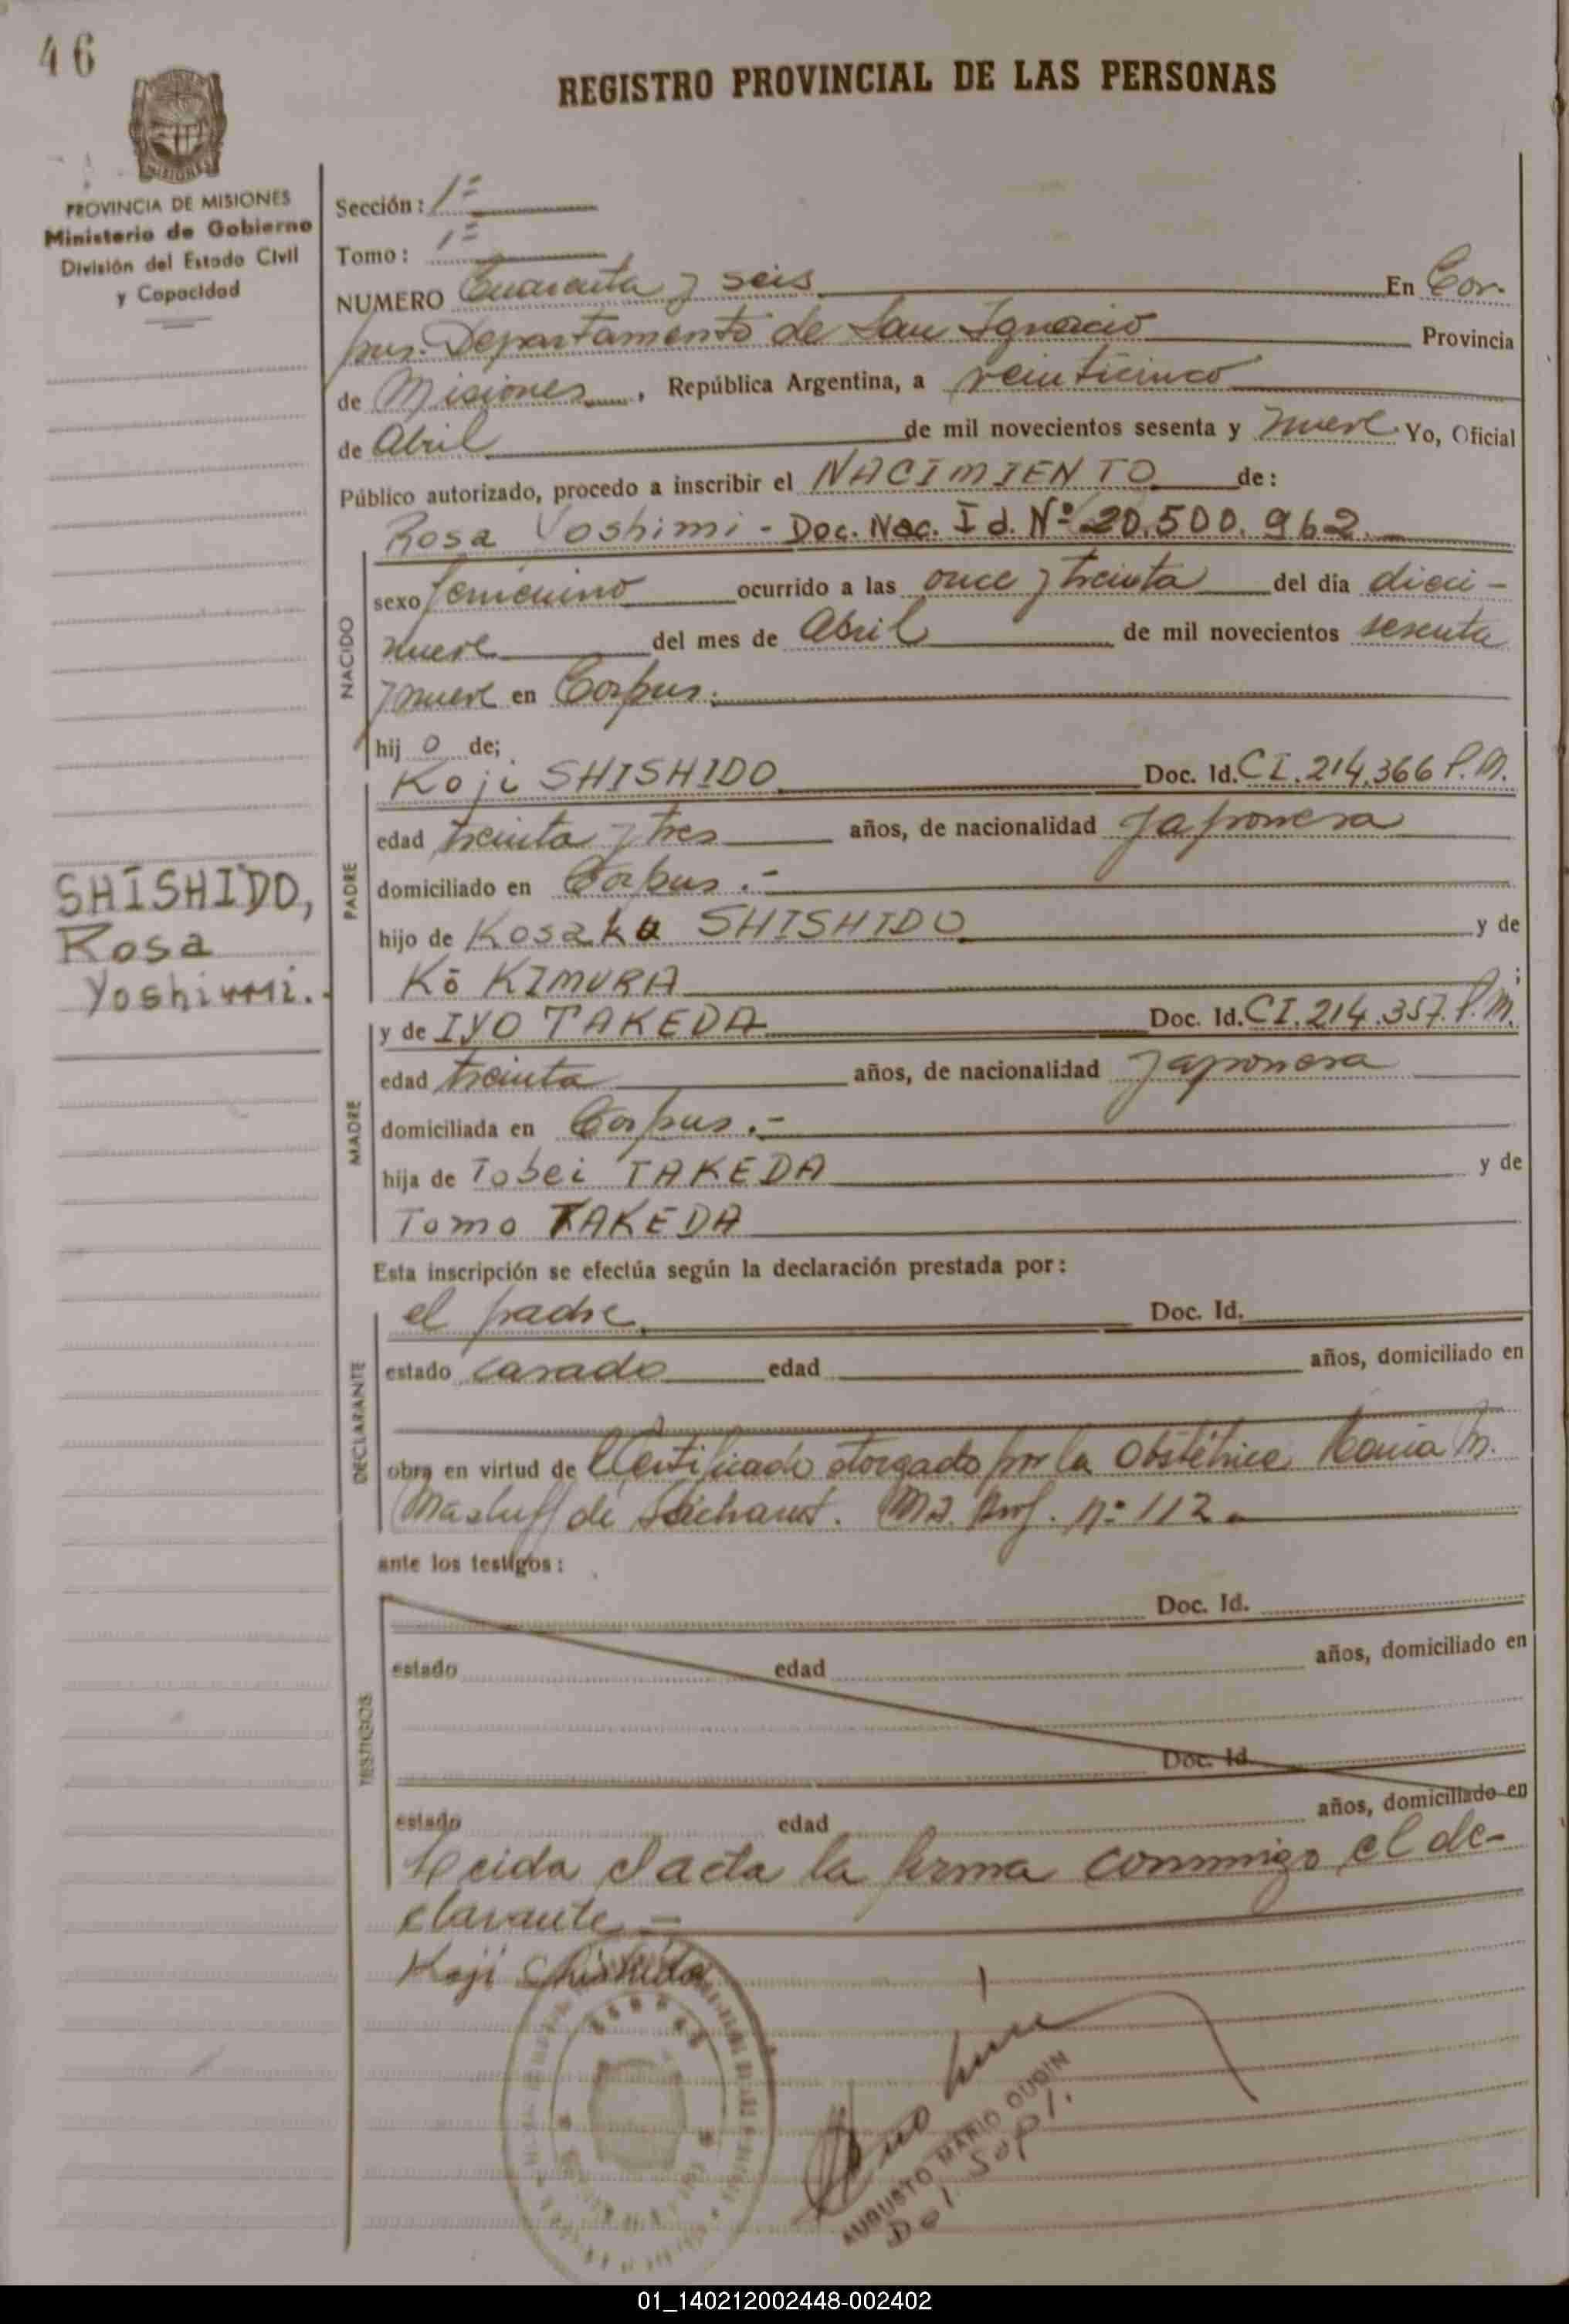 46
REGISTRO PROVINCIAL DE LAS PERSONAS
MISIONES
PROVINCIA DE MISIONES
Ministerio de Gobierno
División del Estado Civil
y Capacidad
Sección: 1ª
Tomo: 1º
NUMERO Cuarenta y seis En Cor-
pus. Departamento de San Ignacio Provincia
de Misiones, República Argentina, a veinticinco
de Abril de mil novecientos sesenta y nueve Yo, Oficial
Público autorizado, procedo a inscribir el NACIMIENTO de:
Rosa Yoshimi - Doc. Nac. Id. Nº 20.500.962.
NACIDO
sexo femenino ocurrido a las once y treinta del día dieci-
nueve del mes de Abril de mil novecientos sesenta
y nueve en Corpus.
hijo de;
PADRE
Koji SHISHIDO Doc. Id. C.I. 214.366 P.M.
edad treinta y tres años, de nacionalidad Japonesa
domiciliado en Corpus.-
hijo de Kosaku SHISHIDO y de
Kō KIMURA;
SHISHIDO,
Rosa
Yoshimi.
MADRE
y de IYO TAKEDA Doc. Id. C.I. 214.357. P.M.
edad treinta años, de nacionalidad Japonesa
domiciliada en Corpus.-
hija de Tobei TAKEDA y de
Tomo TAKEDA
Esta inscripción se efectúa según la declaración prestada por:
DECLARANTE
el padre Doc. Id.
estado casado edad años, domiciliado en
obra en virtud de Certificado otorgado por la Obstétrica María M.
de Nº 112
ante los testigos:
TESTIGOS
Doc. Id.
estado edad años, domiciliado en
Doc. Id.
estado edad años, domiciliado en
Leida el acta la firma conmigo el de-
clarante.-
Koji Shishido
AUGUSTO MARIO OUDIN
Del. Sopl.
01_140212002448-002402